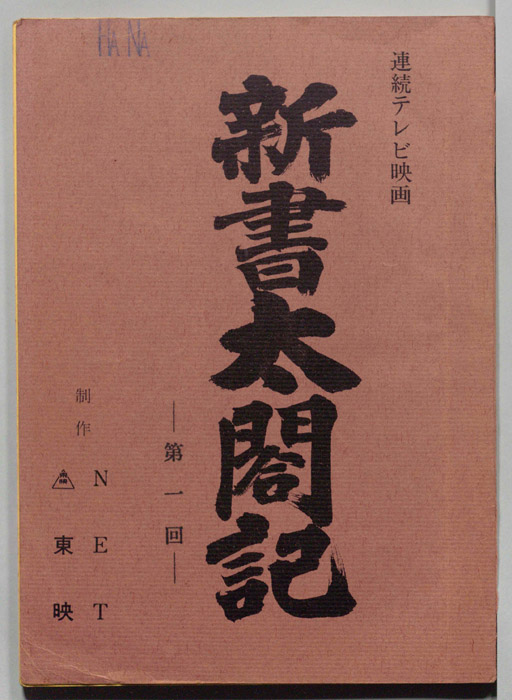 連続テレビ映画
新書太閤記
—第一回—
制作
NET
東映
HANA